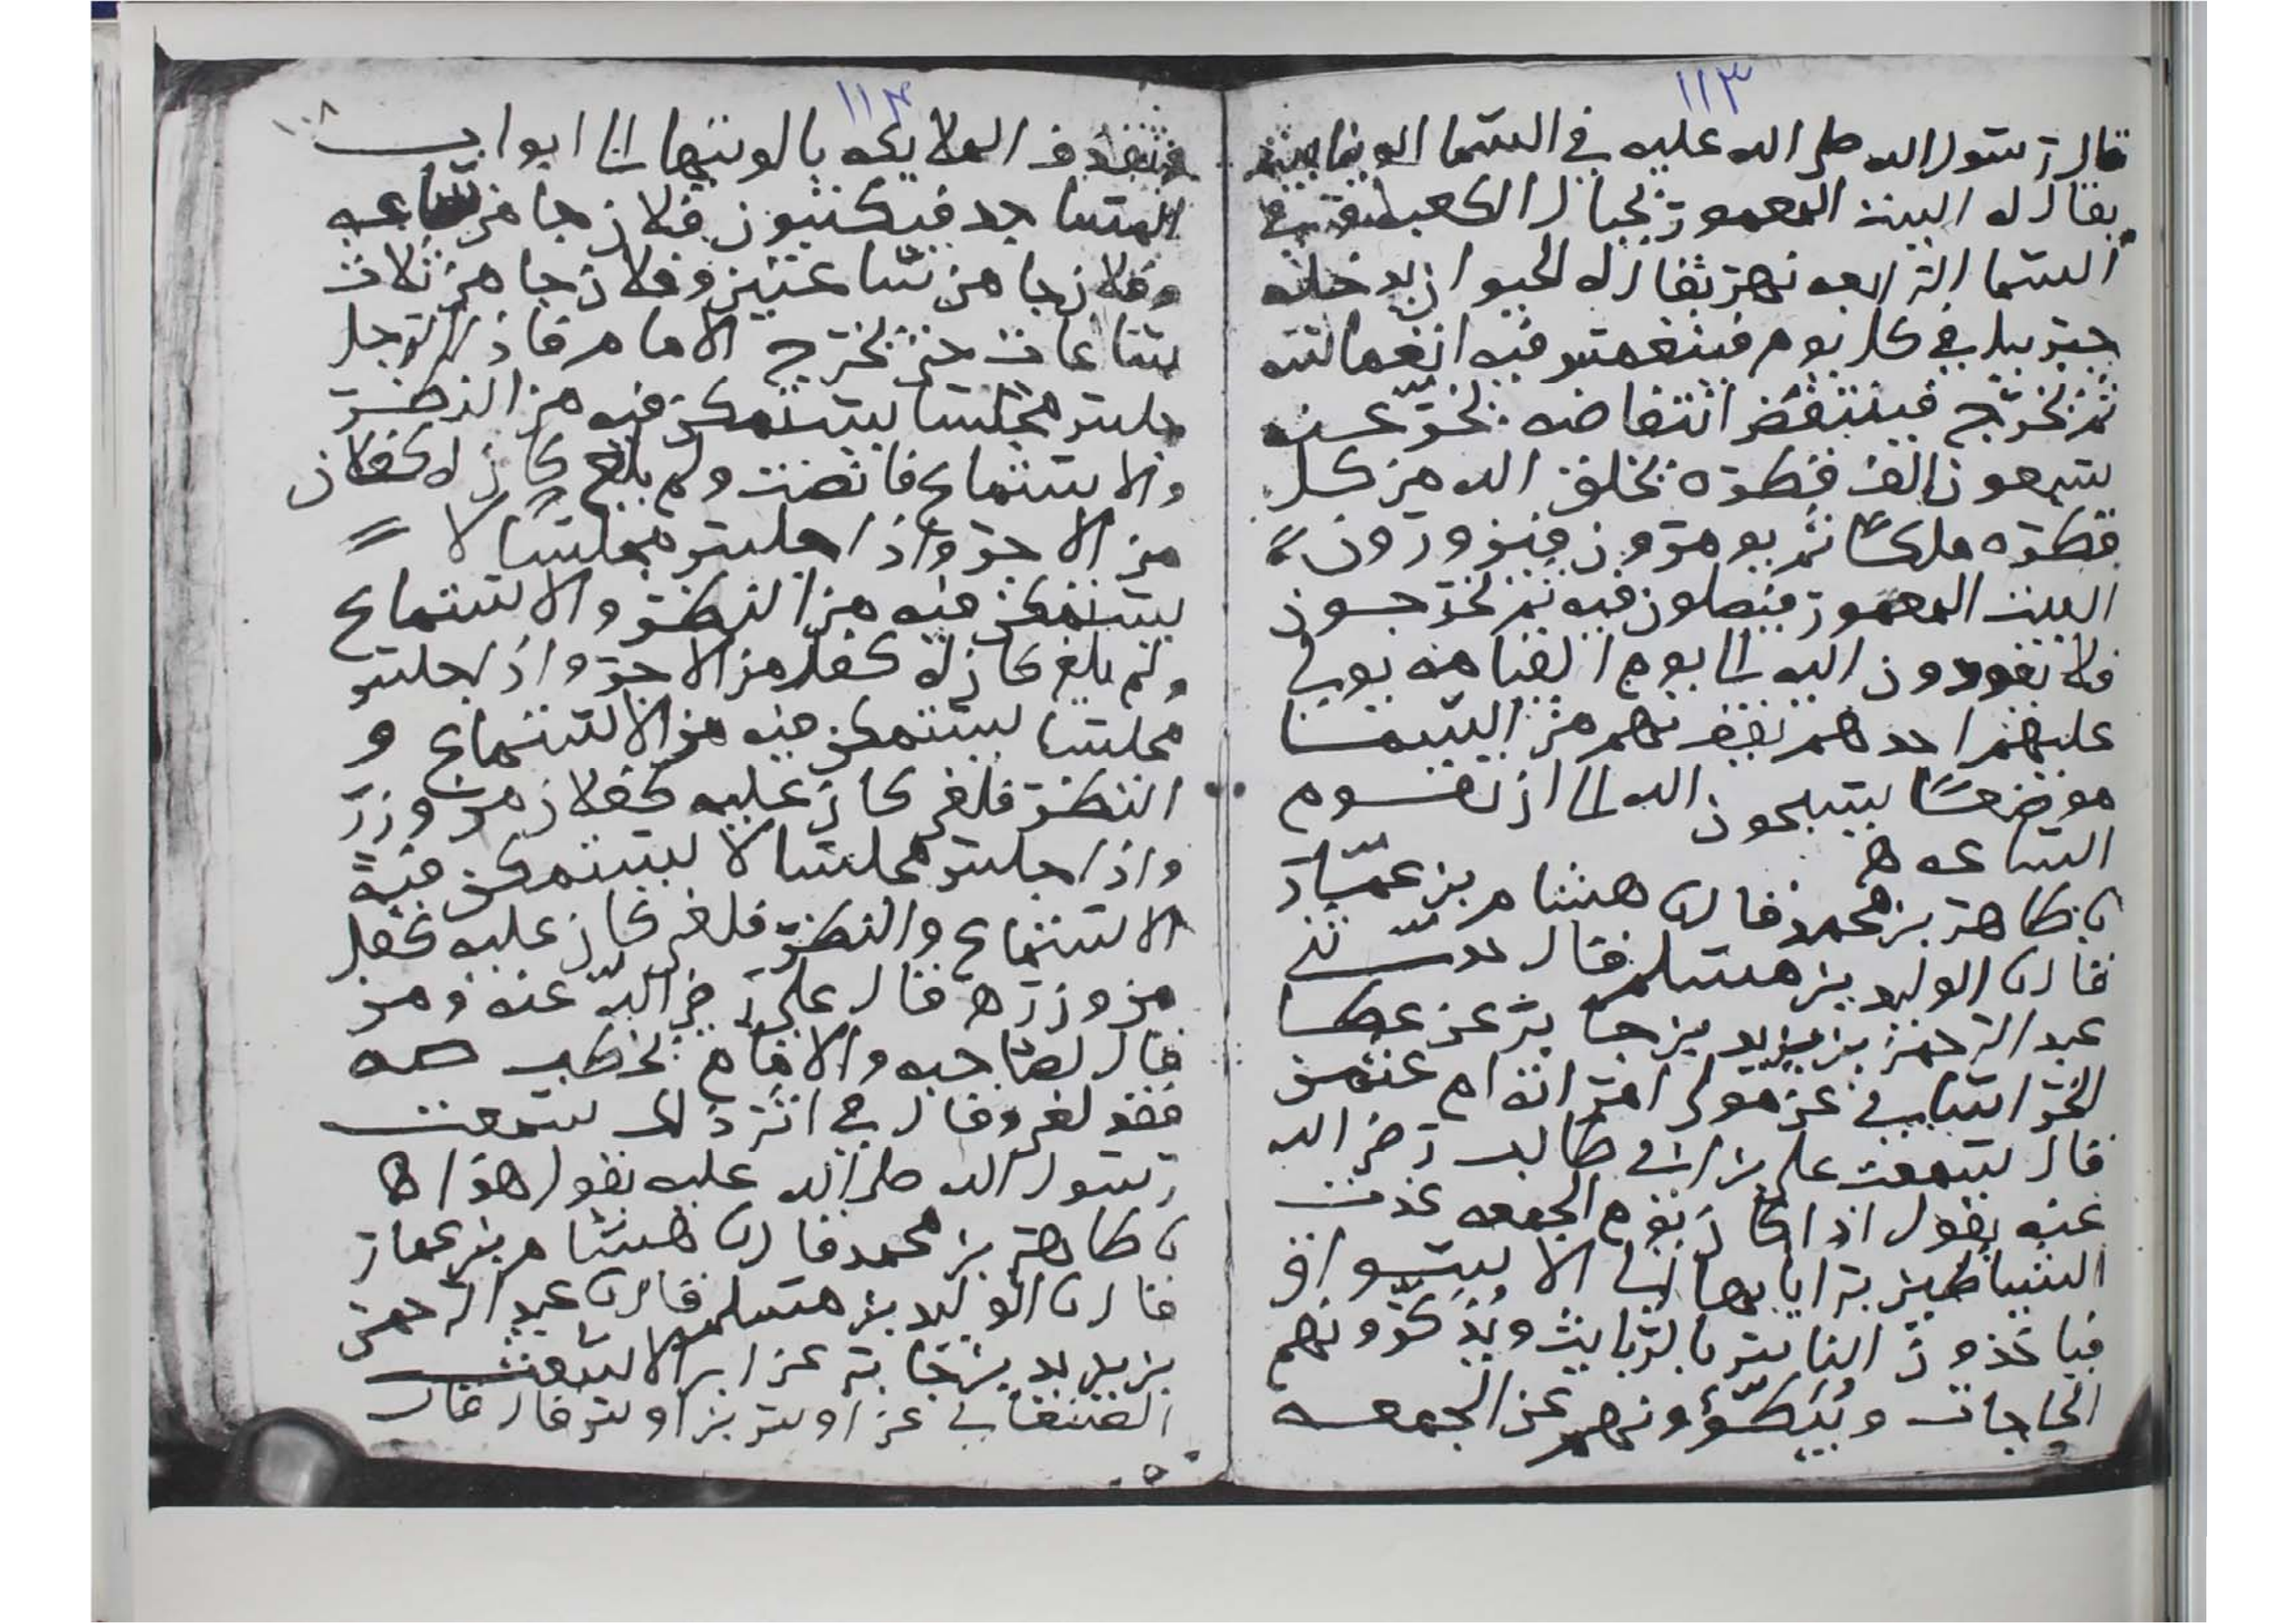 ١١٣
قال رسول الله صلى الله عليه في السما الدنيا بيت
يقال له البيت المعمور بحيال الكعبه وفي
السما الرابعه نهر يقال له الحيوان يدخله
جبريل في كل يوم فينغمس فيه انغماسه
ثم يخرج فينتفض انتفاضه يخر عنه
سبعون الف قطره يخلق الله من كل
قطره ملكا ثم يومرون فيزورون
البيت المعمور فيصلون فيه ثم يخرجون
فلا يعودون اليه الى يوم القيامه يولى
عليهم احدهم يقف بهم من السما
موضعا يسبحون الله الى ان تقوم
الساعه ه
نا طاهر بن محمد قال نا هشام بن عمار
قال نا الوليد بن مسلم قال حدثني
عبد الرحمن بن يزيد بن جابر عن عطا
الخراساني عن مولى امراته ام عثمن
قال سمعت علي بن ابي طالب رضي الله
عنه يقول اذا كان يوم الجمعه غدت
الشياطين براياتها الى الاسواق
فياخذون الناس بالربايث ويذكرونهم
الحاجات ويبطؤونهم عن الجمعه
١١٤
١٠٨
وتغدوا الملايكه بالويتها الى ابواب
المساجد فيكتبون فلان جا من ساعه
وفلان جا من ساعتين وفلان جا من ثلاث
ساعات حتى يخرج الامام فاذا الرجل
جلس مجلسا يستمكن فيه من النظر
والاستماع فانصت ولم يلغ كان له كفلان
من الاجر واذا جلس مجلسا لا
يستمكن فيه من النظر والاستماع
ولم يلغ كان له كفل من الاجر واذا جلس
مجلسا يستمكن فيه من الاستماع و
النظر فلغى كان عليه كفلان من وزر
واذا جلس مجلسا لا يستمكن فيه
الاستماع والنظر فلغى كان عليه كفل
من وزر ه قال علي رضي الله عنه ومن
قال لصاحبه والامام يخطب صه
فقد لغى وقال في اثر ذلك سمعت
رسول الله صلى الله عليه يقول هذا ه
نا طاهر بن محمد قال نا هشام بن عمار
قال نا الوليد بن مسلم قال نا عبد الرحمن
بن يزيد بن جابر عن ابي الاشعث
الصنعاني عن اوس بن اوس قال قال